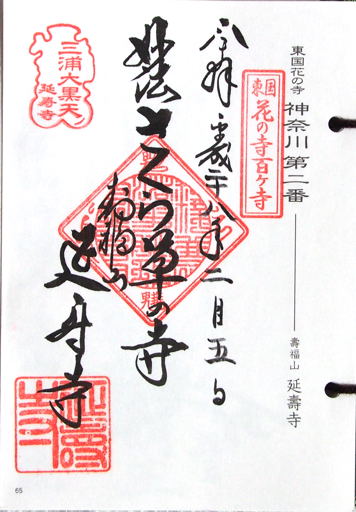 東国花の寺
神奈川 第二番
壽福山 延壽寺
東国
花の寺百ヶ寺
奉拝 平成二十八年二月五日
さくら草の寺
壽福山
延寿寺
三浦大黒天
延寿寺
65